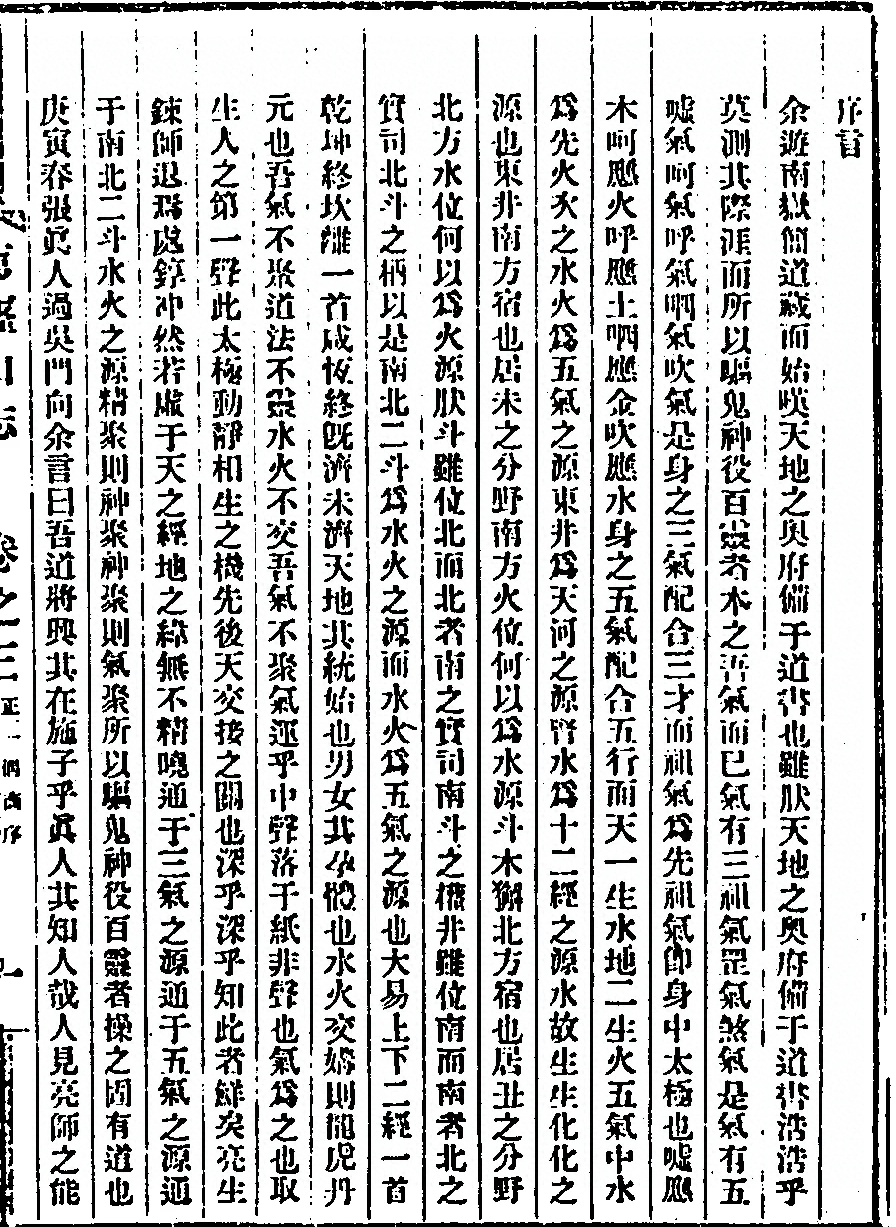 序言
余遊南嶽簡道藏而始嘆天地之奧府備于道書也雖肰天地之奧府備于道書浩浩乎
莫測其際涯而所以驅鬼神役百靈者本之吾氣而已氣有三祖氣罡氣煞氣是氣有五
噓氣呵氣呼氣呬氣吹氣是身之三氣配合三才而祖氣為先祖氣卽身中太極也噓應
木呵應火呼應土呬應金吹應水身之五氣配合五行而天一生水地二生火五氣中水
為先火次之水火為五氣之源東井為天河之源腎水為十二經之源水故生生化化之
源也東井南方宿也居未之分野南方火位何以為水源斗木獬北方宿也居丑之分野
北方水位何以為火源肰斗雖位北而北者南之實司南斗之權井雖位南而南者北之
實司北斗之柄以是南北二斗為水火之源而水火為五氣之源也大易上下二經一首
乾坤終坎離一首咸恆終既濟未濟天地其統始也男女其孕體也水火交媾則龍虎丹
元也吾氣不聚道法不靈水火不交吾氣不聚氣運乎中聲落于紙非聲也氣為之也取
生人之第一聲此太極動靜相生之機先後天交接之關也深乎深乎知此者鮮矣亮生
鍊師退焉處錞冲然若虛于天之經地之緯無不精曉通于三氣之源通于五氣之源通
于南北二斗水火之源精聚則神聚神聚則氣聚所以驅鬼神役百靈者操之固有道也
庚寅春張眞人過吳門向余言曰吾道將興其在施子乎眞人其知人哉人見亮師之能
卷之三